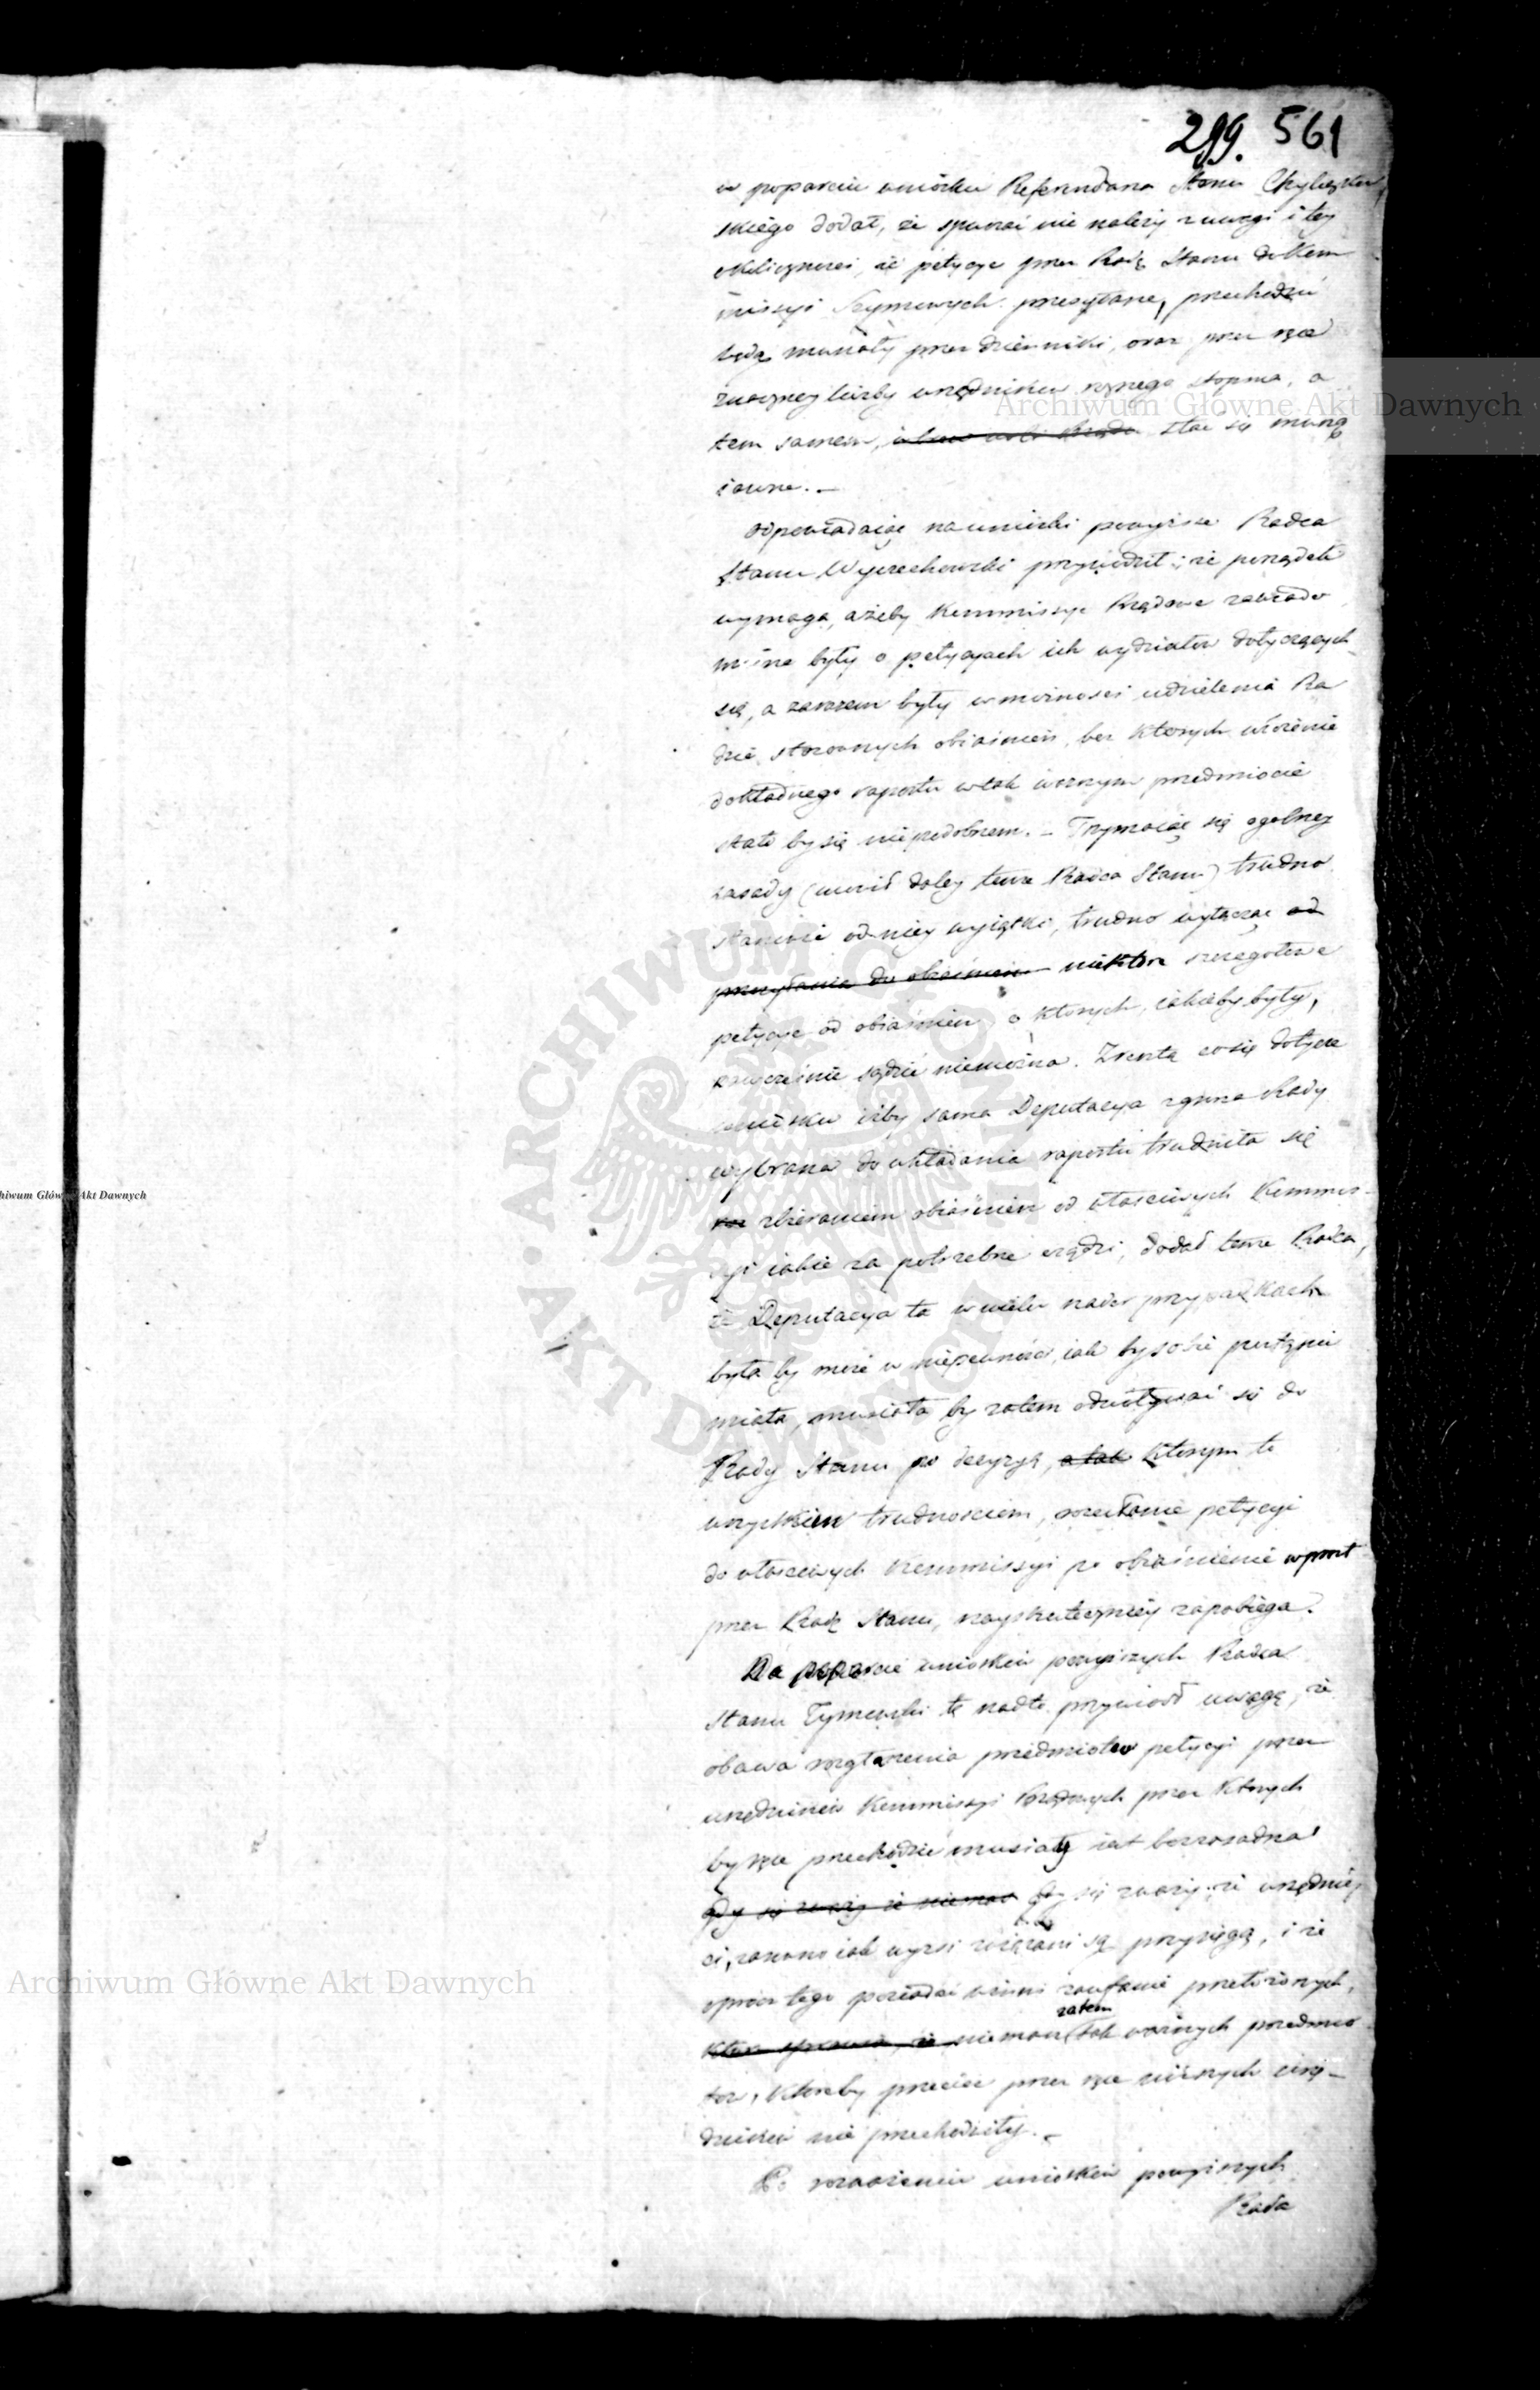 299. 561
w poparciu wniosku Referendarza Stanu Chyliczkow
skiego dodał, że spuszczać nie należy z uwagi i tey
okoliczności, że petycye przez Radę Stanu do Kom
missyi Seymowych przesyłane, przechodzić
będą musiały przez dzienniki, oraz przez ręce
znaczney liczby urzędników rożnego stopnia, a
tem samem, stać się muszą
iawne. –
Odpowiadaiąc na wnioski powyższe Radca
Stanu Wyczechowski przywiódł; że porządek
wymaga, ażeby Kommissye Rządowe zawiado
mione były o petycyach ich wydziałów dotyczących
się, a zarazem były w możności udzielenia Ra
dzie stosownych obiaśnień, bez ktorych ułożenie
dokładnego raportu w tak ważnym przedmiocie
stało by się niepodobnem. – Trzymaiąc się ogolney
zasady (mówił daley tenże Radca Stanu) trudno
stanowić od niey wyiątki, trudno wyłączać od
przesyłania do obiaśnienia niektore szczegołowe
petycye od obiaśnień o ktorych, iakieby były,
zawcześnie sądzić niemożna. Zresztą co się dotycze
wniosku iżby sama Deputacya z grona Rady
wybrana do układania raportu trudniła się
zbieraniem obiaśnień od własciwych Kommis-
syi iakie za potrzebne osądzi, dodał tenże Radca,
że Deputacya ta w wielu razach przypadkach
była by może w niepewności, iak by sobie postąpić
miała, musiała by zatem odwoływać się do
Rady Stanu po decyzyą, a tak ktorym to
wszystkiem trudnosciom, przesłanie petycyi
do własciwych Kommissyi po obiaśnienie wprost
przez Radę Stanu, nayskuteczniey zapobiega.
Na poparcie wniosków powyższych Radca
Stanu Tymowski tę nadto przywiodł uwagę, że
obawa rozgłoszenia przedmiotow petycyi przez
urzędników Kommissyi Rządowych przez ktorych
by ręce przechodzić musiały iest bezzasadna
gdy się zważy że niemasz gdy się zważy, że urzędnicy
ci, zarowno iak wyżsi związani są przysięgą, i że
oprócz tego posiadać winni zaufanie przełożonych,
zatem
które sprawia, że niemasz tak ważnych przedmio
tow, ktoreby przecież przez ręce niższych urzę-
dników nie przechodziły. –
Po rozważeniu wniosków powyższych
Rada
Archiwum Główne Akt Dawnych
Archiwum Główne Akt Dawnych
hiwum Główne Akt Dawnych
ARCHIWUM GŁÓWNE AKT DAWNYCH